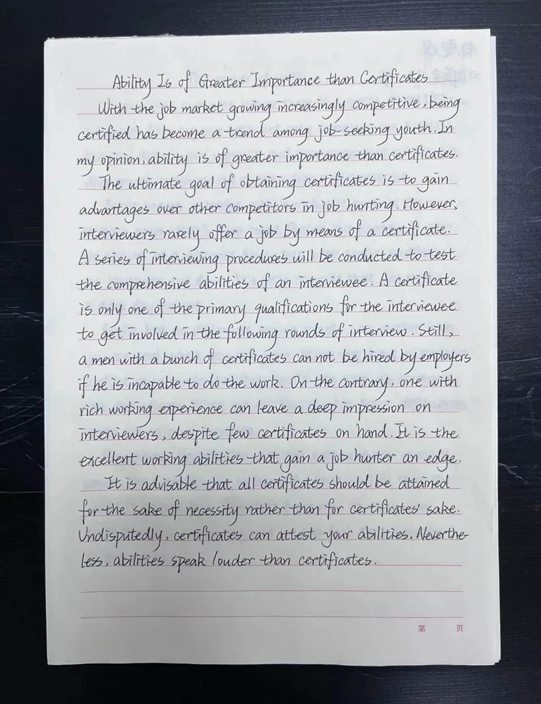 Ability Is of Greater Importance than Certificates
With the job market growing increasingly competitive, being
certified has become a trend among job-seeking youth. In
my opinion, ability is of greater importance than certificates.
The ultimate goal of obtaining certificates is to gain
advantages over other competitors in job hunting. However,
interviewers rarely offer a job by means of a certificate.
A series of interviewing procedures will be conducted to test
the comprehensive abilities of an interviewee. A certificate
is only one of the primary qualifications for the interviewee
to get involved in the following rounds of interview. Still,
a men with a bunch of certificates can not be hired by employers
if he is incapable to do the work. On the contrary, one with
rich working experience can leave a deep impression on
interviewers, despite few certificates on hand. It is the
excellent working abilities that gain a job hunter an edge.
It is advisable that all certificates should be attained
for the sake of necessity rather than for certificates' sake.
Undisputedly, certificates can attest your abilities. Neverthe-
less, abilities speak louder than certificates.
第 页